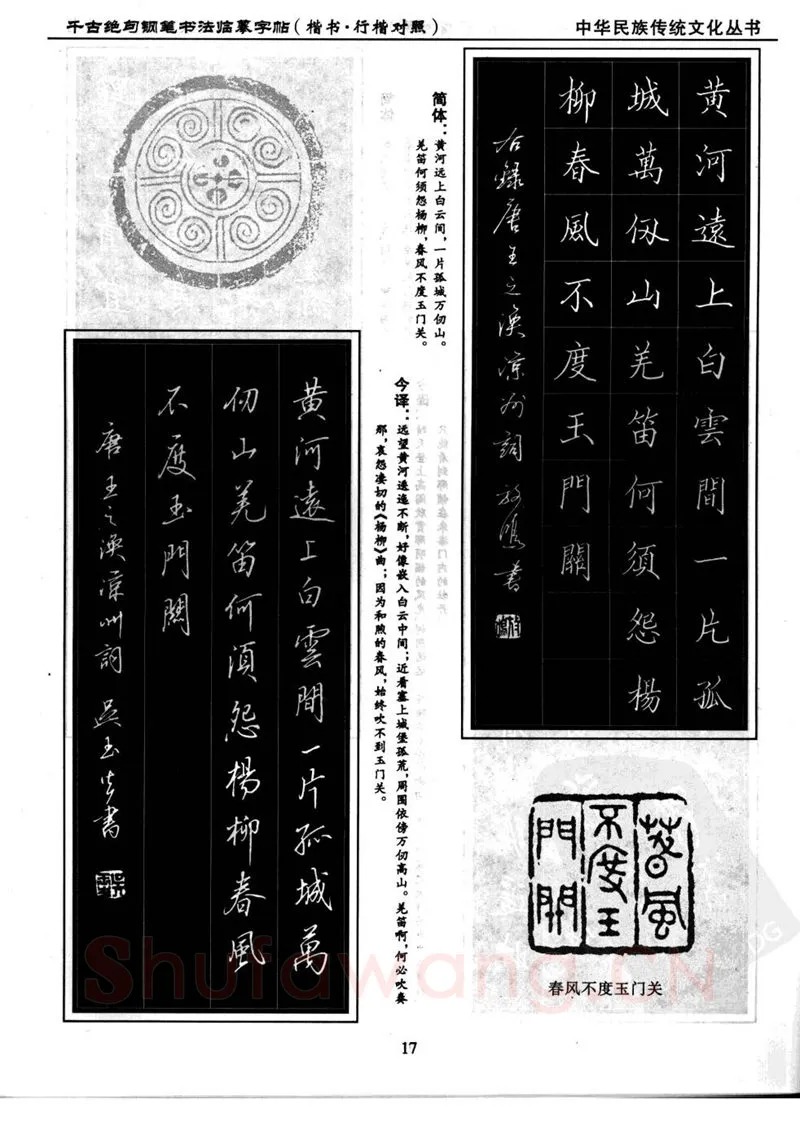 千古绝句钢笔书法临摹字帖（楷书·行楷对照）
中华民族传统文化丛书
黄河遠上白雲間一片孤
城萬仞山羌笛何須怨楊
柳春風不度玉門關
右錄唐王之渙涼州詞
書
简体：黄河远上白云间，一片孤城万仞山。
羌笛何须怨杨柳，春风不度玉门关。
今译：远望黄河逶迤不断，好像嵌入白云中间；近看塞上城堡孤荒，周围依傍万仞高山。羌笛啊，何必吹奏
那，哀怨凄切的《杨柳》曲；因为和煦的春风，始终吹不到玉门关。
黄河遠上白雲間一片孤城萬
仞山羌笛何須怨楊柳春風
不度玉門關
唐王之渙涼州詞 吴玉生書
春風
不度玉
門關
春风不度玉门关
17
Shufawang.CN